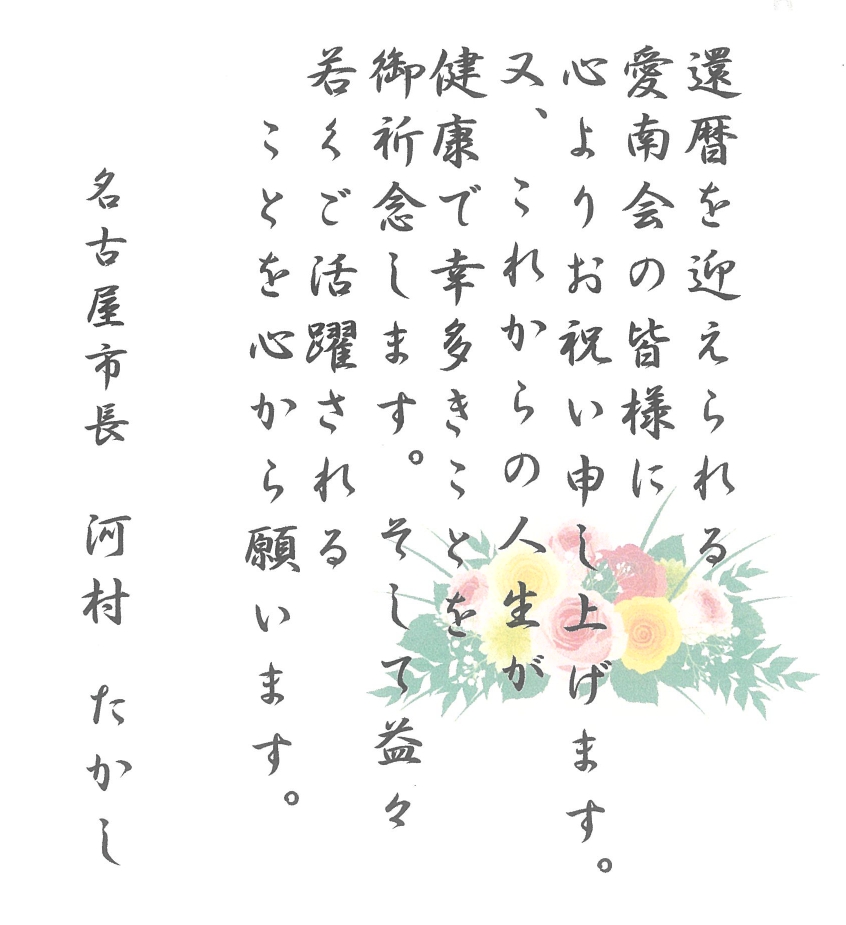 還暦を迎えられる
愛南会の皆様に
心よりお祝い申し上げます。
又、これからの人生が
健康で幸多きことを
御祈念します。そして益々
若くご活躍される
ことを心から願います。
名古屋市長　河村　たかし